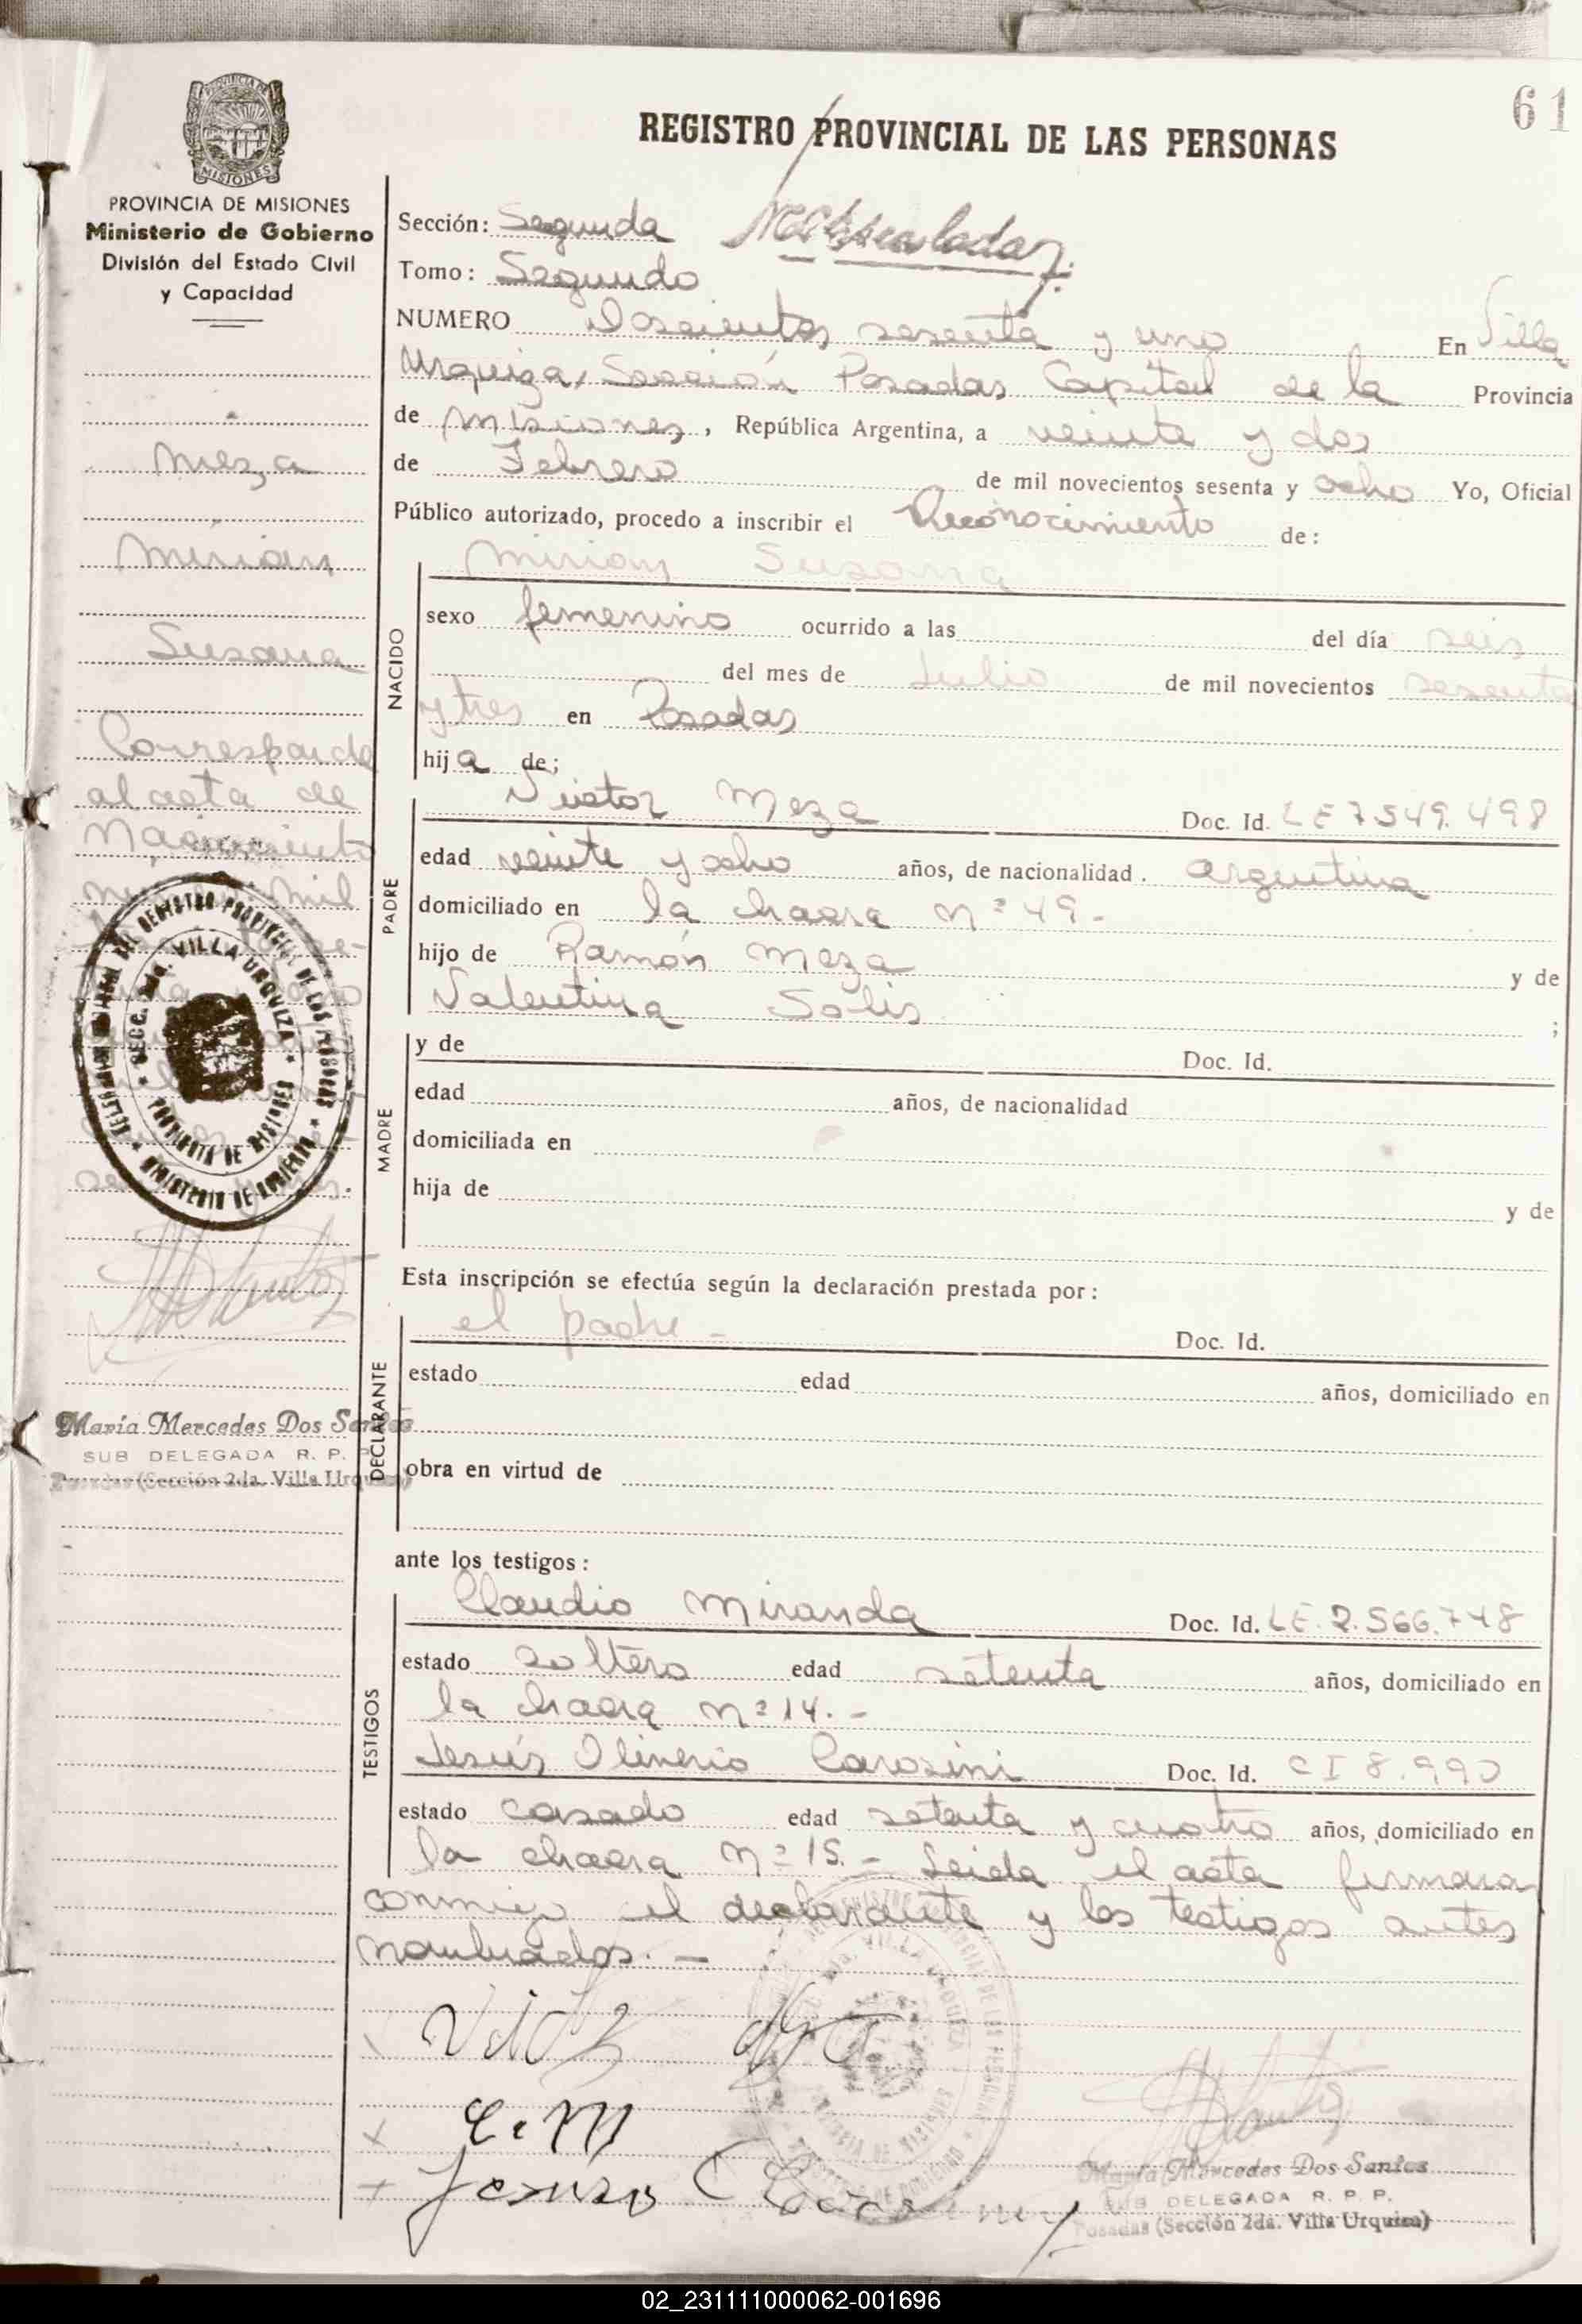 61
REGISTRO PROVINCIAL DE LAS PERSONAS
PROVINCIA DE MISIONES
MISIONES
PROVINCIA DE MISIONES
Ministerio de Gobierno
División del Estado Civil
y Capacidad
Meza
Mirian
Susana
Corresponde
al acta de
Nacimiento
mil
María Mercedes Dos Santos
SUB DELEGADA R. P. P.
Posadas (Sección 2da. Villa Urquiza)
Sección: Segunda
Tomo: Segundo
NUMERO Doscientos sesenta y uno En Villa
Urquiza, Sección Posadas Capital de la Provincia
de Misiones, República Argentina, a veinte y dos
de Febrero de mil novecientos sesenta y ocho Yo, Oficial
Público autorizado, procedo a inscribir el Reconocimiento de:
NACIDO
Mirian Susana
sexo femenino ocurrido a las del día seis
del mes de Julio de mil novecientos sesenta
y tres en Posadas
hija de;
PADRE
Victor Meza Doc. Id. LE 7549.498
edad veinte y ocho años, de nacionalidad. argentina
domiciliado en la chacra nº 49.-
hijo de Ramón Meza y de
Valentina Solis ;
MADRE
y de Doc. Id.
edad años, de nacionalidad
domiciliada en
hija de y de
Esta inscripción se efectúa según la declaración prestada por:
DECLARANTE
el padre - Doc. Id.
estado edad años, domiciliado en
obra en virtud de
ante los testigos:
TESTIGOS
Claudio Miranda Doc. Id. LE. 2.566.748
estado soltero edad setenta años, domiciliado en
la chacra nº 14.-
Jesús Olinerio Carosini Doc. Id. CI 8.990
estado casado edad setenta y cuatro años, domiciliado en
la chacra nº 15.- Leida el acta firmaron
conmigo el declarante y los testigos antes
nombrados.-
C. M
María Mercedes Dos Santos
SUB DELEGADA R. P. P.
Posadas (Sección 2da. Villa Urquiza)
02_231111000062-001696